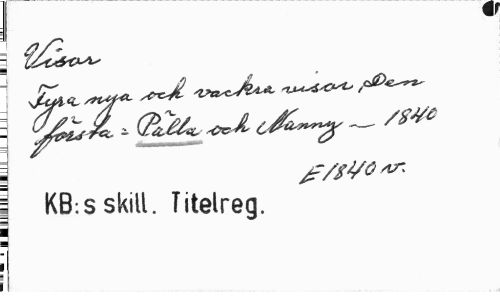 Visor
Fyra nya och vackra visor, Den
första: Pälla och Nanny — 1840
E 1840 v.
KB:s skill. Titelreg.